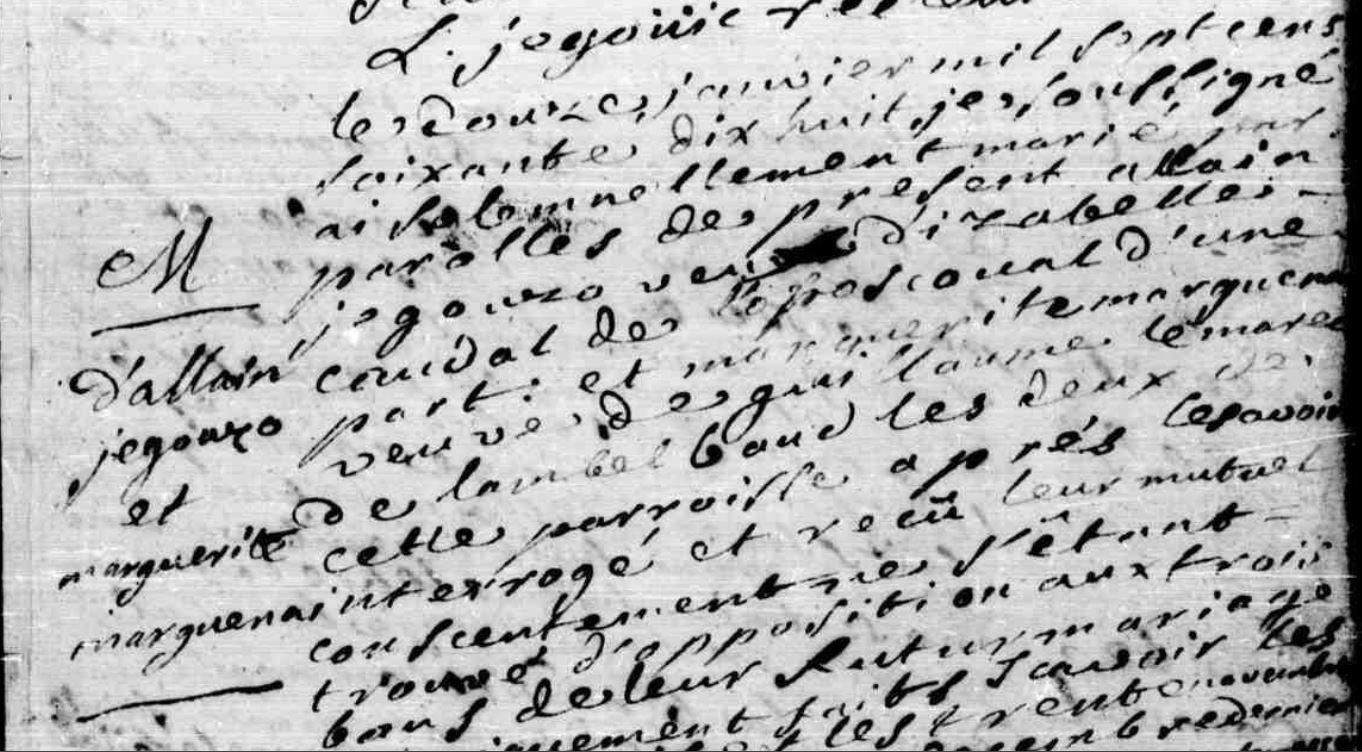 L. jegouic recteur
le douze janvier mil sept cens
soixante dix huit, je soussigné
ai solemnellement marié par
parolles de present allain
jegouzo veuf d'izabelle
coudal de d'une
part. et marguerite marguena
veuve de guillaume le marec
de lambel baud les deux de
cette parroisse après les avoir
interrogé et recû leur mutuel
consentement ne s'êtant
trouvé d'opposition aux trois
bans de leur futur mariage
faits sçavoir les
trente novembre
dernier
M
d'allain
jegouzo
et
marguerite
marguena